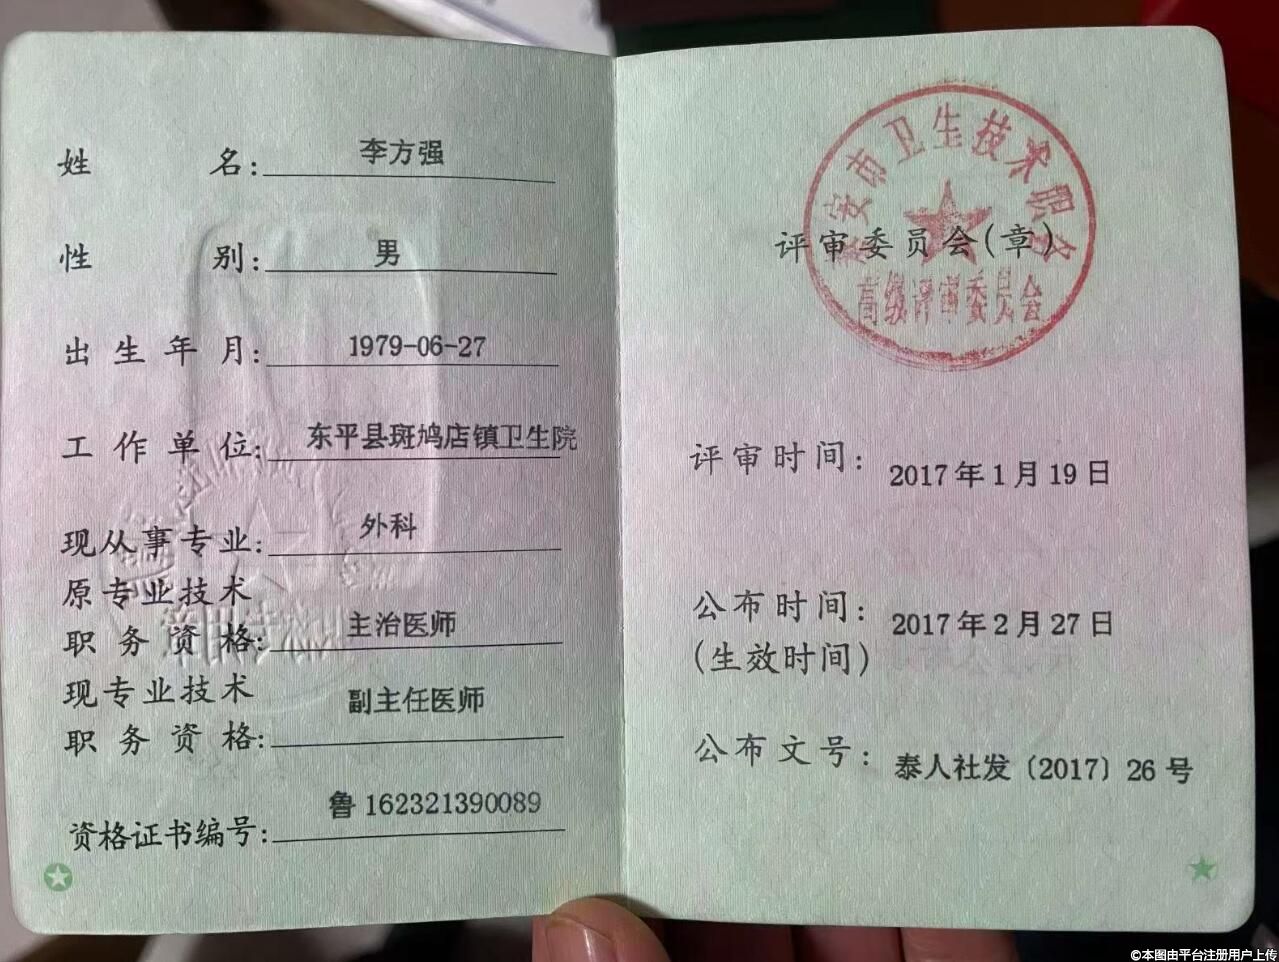 姓名：李方强
性别：男
出生年月：1979-06-27
工作单位：东平县斑鸠店镇卫生院
现从事专业：外科
原专业技术
职务资格：主治医师
现专业技术
职务资格：副主任医师
资格证书编号：鲁 162321390089
泰安市卫生技术职务
高级评审委员会
评审委员会(章)
评审时间：2017年1月19日
公布时间：2017年2月27日
(生效时间)
公布文号：泰人社发〔2017〕26号
©本图由平台注册用户上传